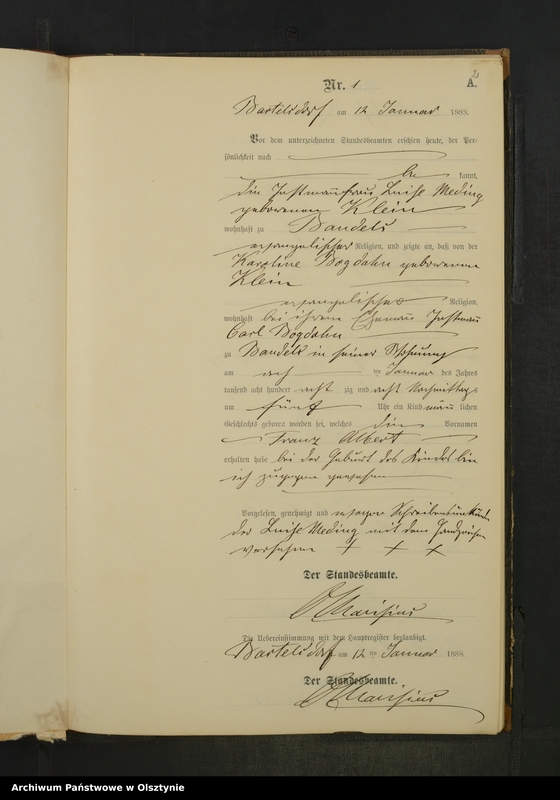 2
Nr. 1 A.
Bartelsdorf am 12 Januar 1888.
Vor dem unterzeichneten Standesbeamten erschien heute, der Per-
sönlichkeit nach
be kannt,
die Instmannfrau Luise Meding
geborenen Klein
wohnhaft zu Bandels
evangelischer Religion, und zeigte an, daß von der
Karoline Bogdahn geborenen
Klein
evangelischer Religion,
wohnhaft bei ihrem Ehemann Instmann
Carl Bogdahn
zu Bandels in seiner Wohnung
am acht ten Januar des Jahres
tausend acht hundert acht zig und acht Nachmittags
um fünf Uhr ein Kind männ lichen
Geschlechts geboren worden sei, welches die Vornamen
Franz Albert
erhalten habe bei der Geburt des Kindes bin
ich zugegen gewesen
Vorgelesen, genehmigt und wegen Schreibensunkunde
der Luise Meding mit dem Handzeichen
versehen + + +
Der Standesbeamte.
Die Uebereinstimmung mit dem Hauptregister beglaubigt.
Bartelsdorf am 12 ten Januar 1888
Der Standesbeamte.
Archiwum Państwowe w Olsztynie